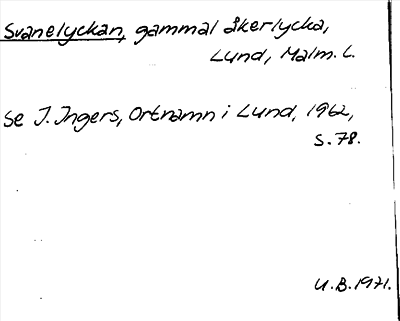 Svanelyckan, gammal åkerlycka,
Lund, Malm. L.
se J. Ingers, Ortnamn i Lund, 1962,
s. 78.
U.B. 1971.